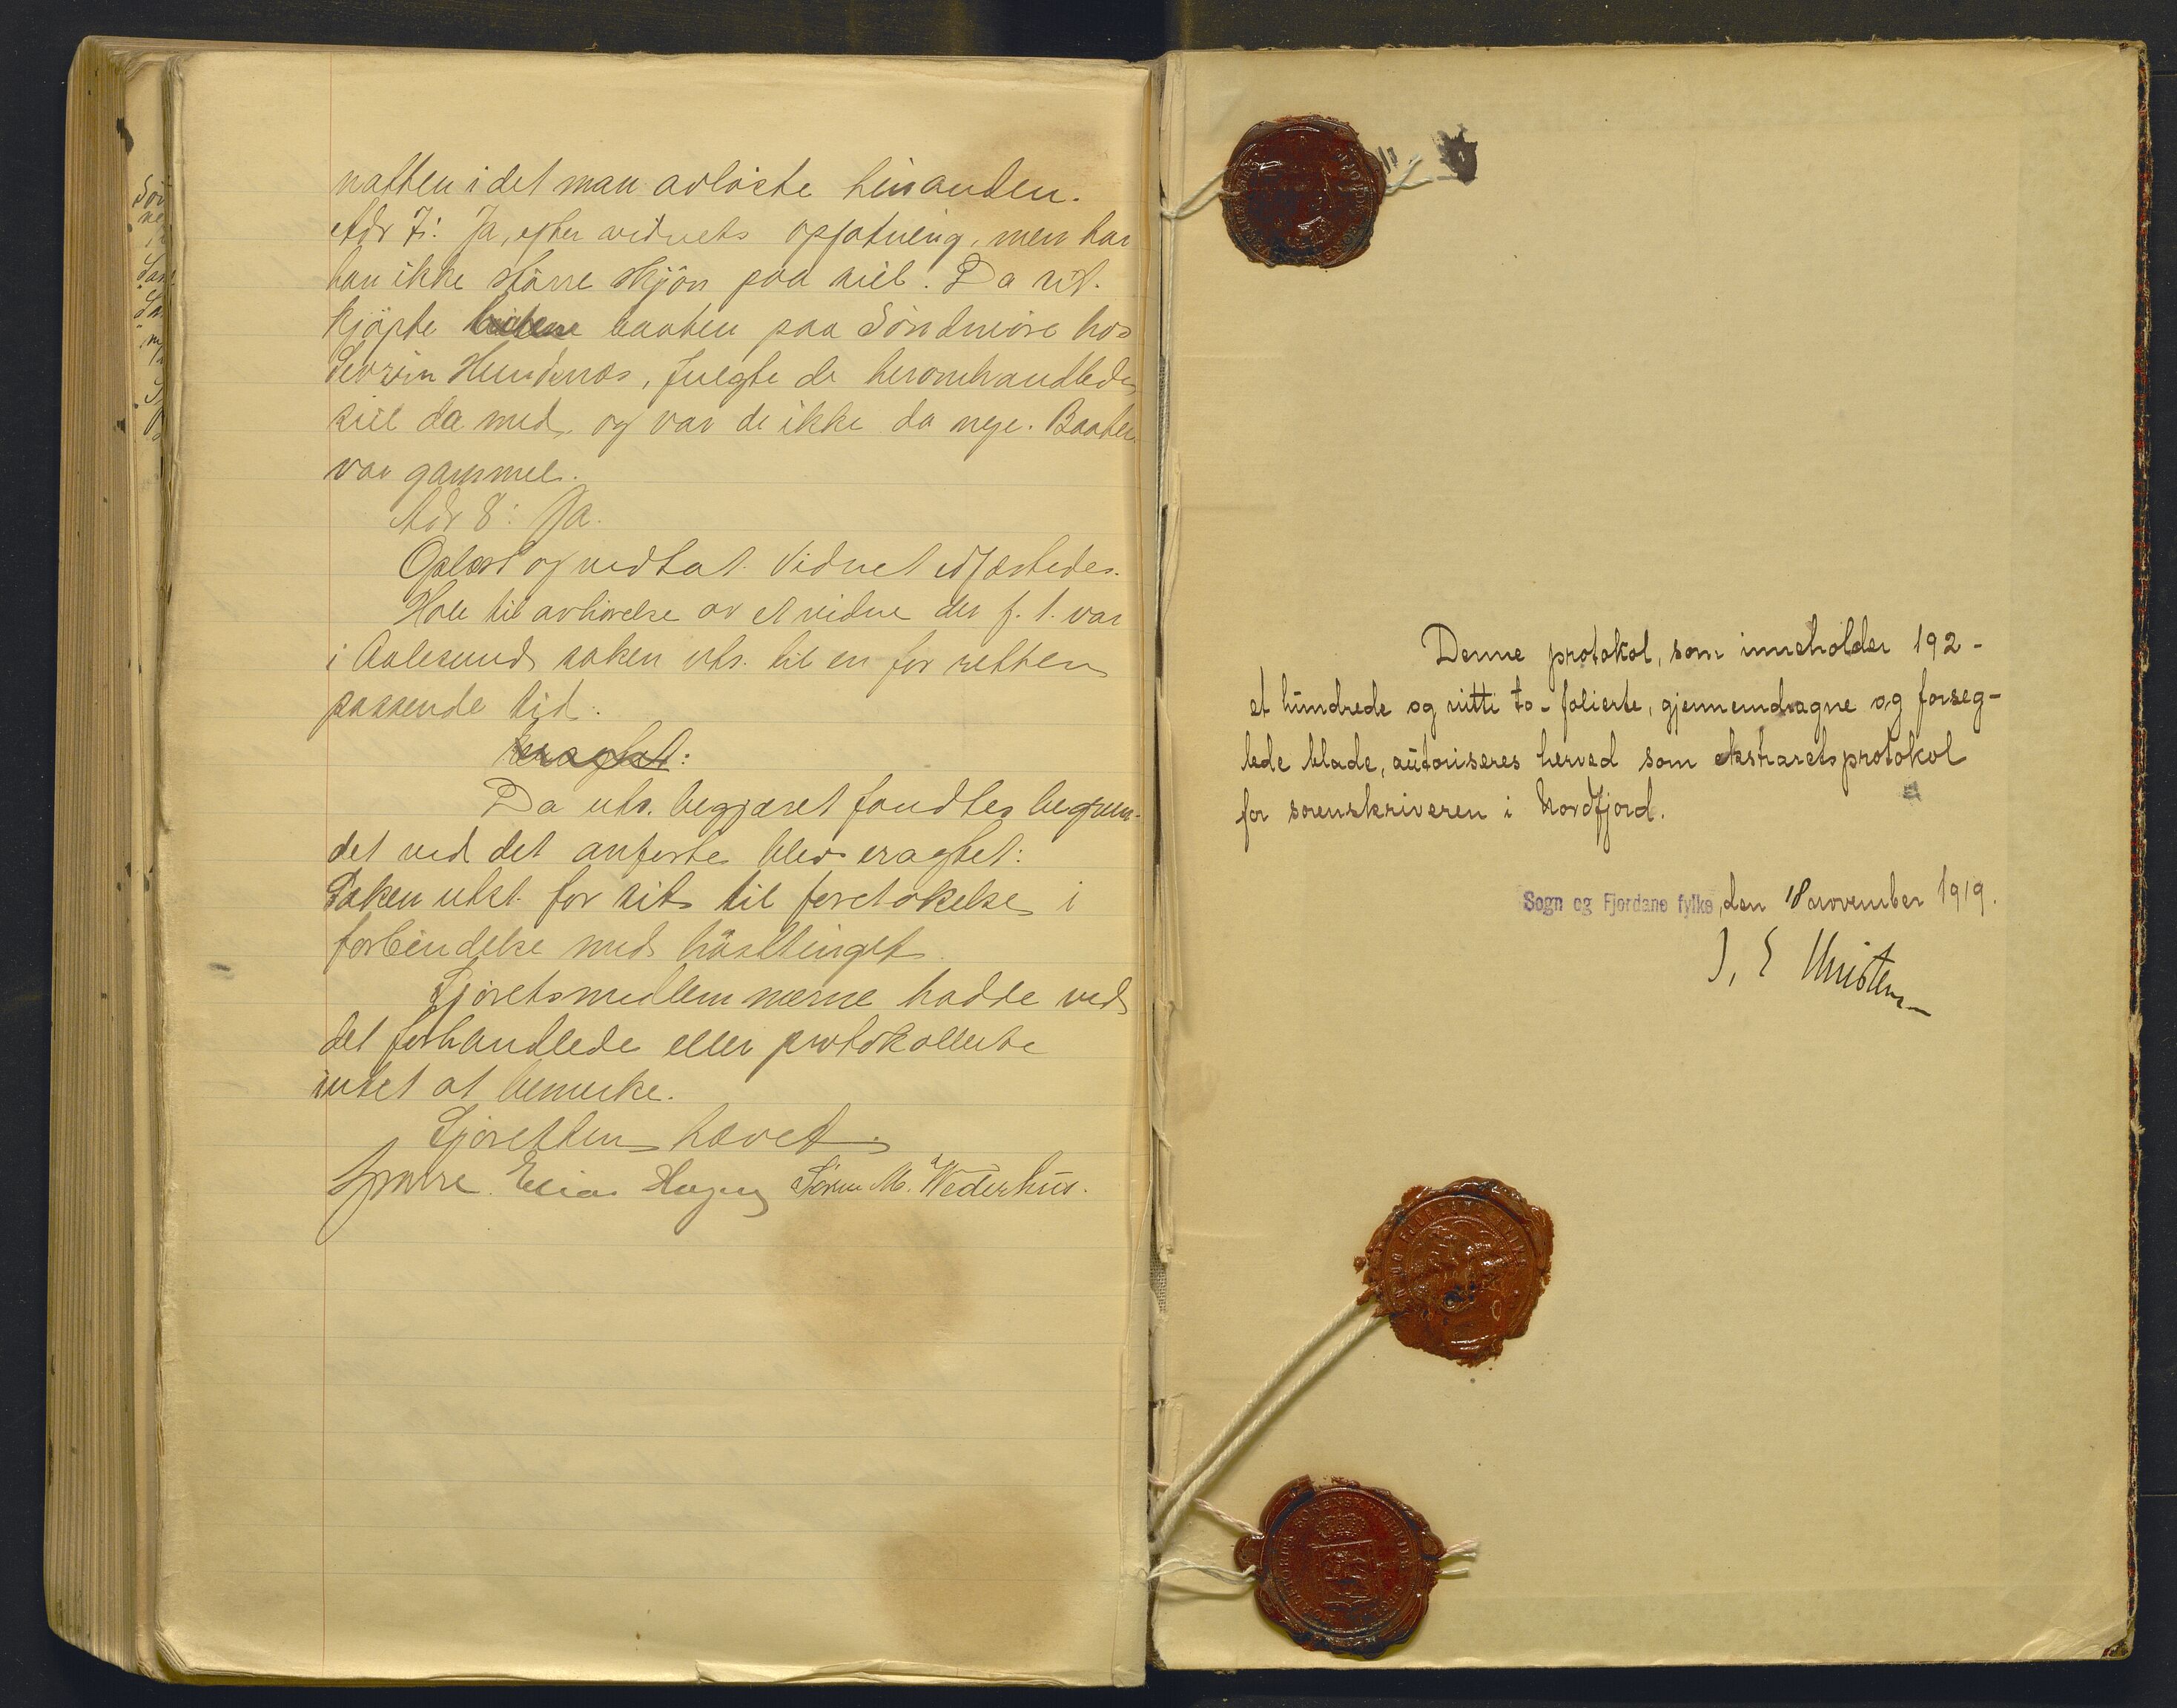 natten idet man avløste hinanden.
Adr 7: Ja, efter vidnets opfatning, men har
han ikke større skjøn paa seil. Da vit.
kjøpte baaten paa Søndmøre hos
Severin Hundsnes, fulgte de heromhandlede
seil da med og var de ikke da nye. Baaten
var gammel.
Adr 8: Ja.
Oplæst og vedtat. Vidnet edfæstedes.
Hole til avhørelse av et vidne der f. t. var
i Aalesund saken uts. til en for retten
passende tid.
eragtet:
Da uts. begjæret fandtes begrun-
det ved det anførte blev eragtet:
Saken utst. for sit til foretakelse i
forbindelse med høsttinget.
Sjøretsmedlemmerne hadde ved
det forhandlede eller protokollerte
intet at bemerke.
Sjøretten hævet.
Sparre. Elias Hagen Søren M. Wederhus.
Denne protokol, som inneholder 192 -
et hundrede og nitti to - folierte, gjennemdragne og forseg-
lede blade, autoriseres herved som ekstraretsprotokol
for sorenskriveren i Nordfjord.
Sogn og Fjordane fylke, den 18 november 1919.
J. E. Christensen